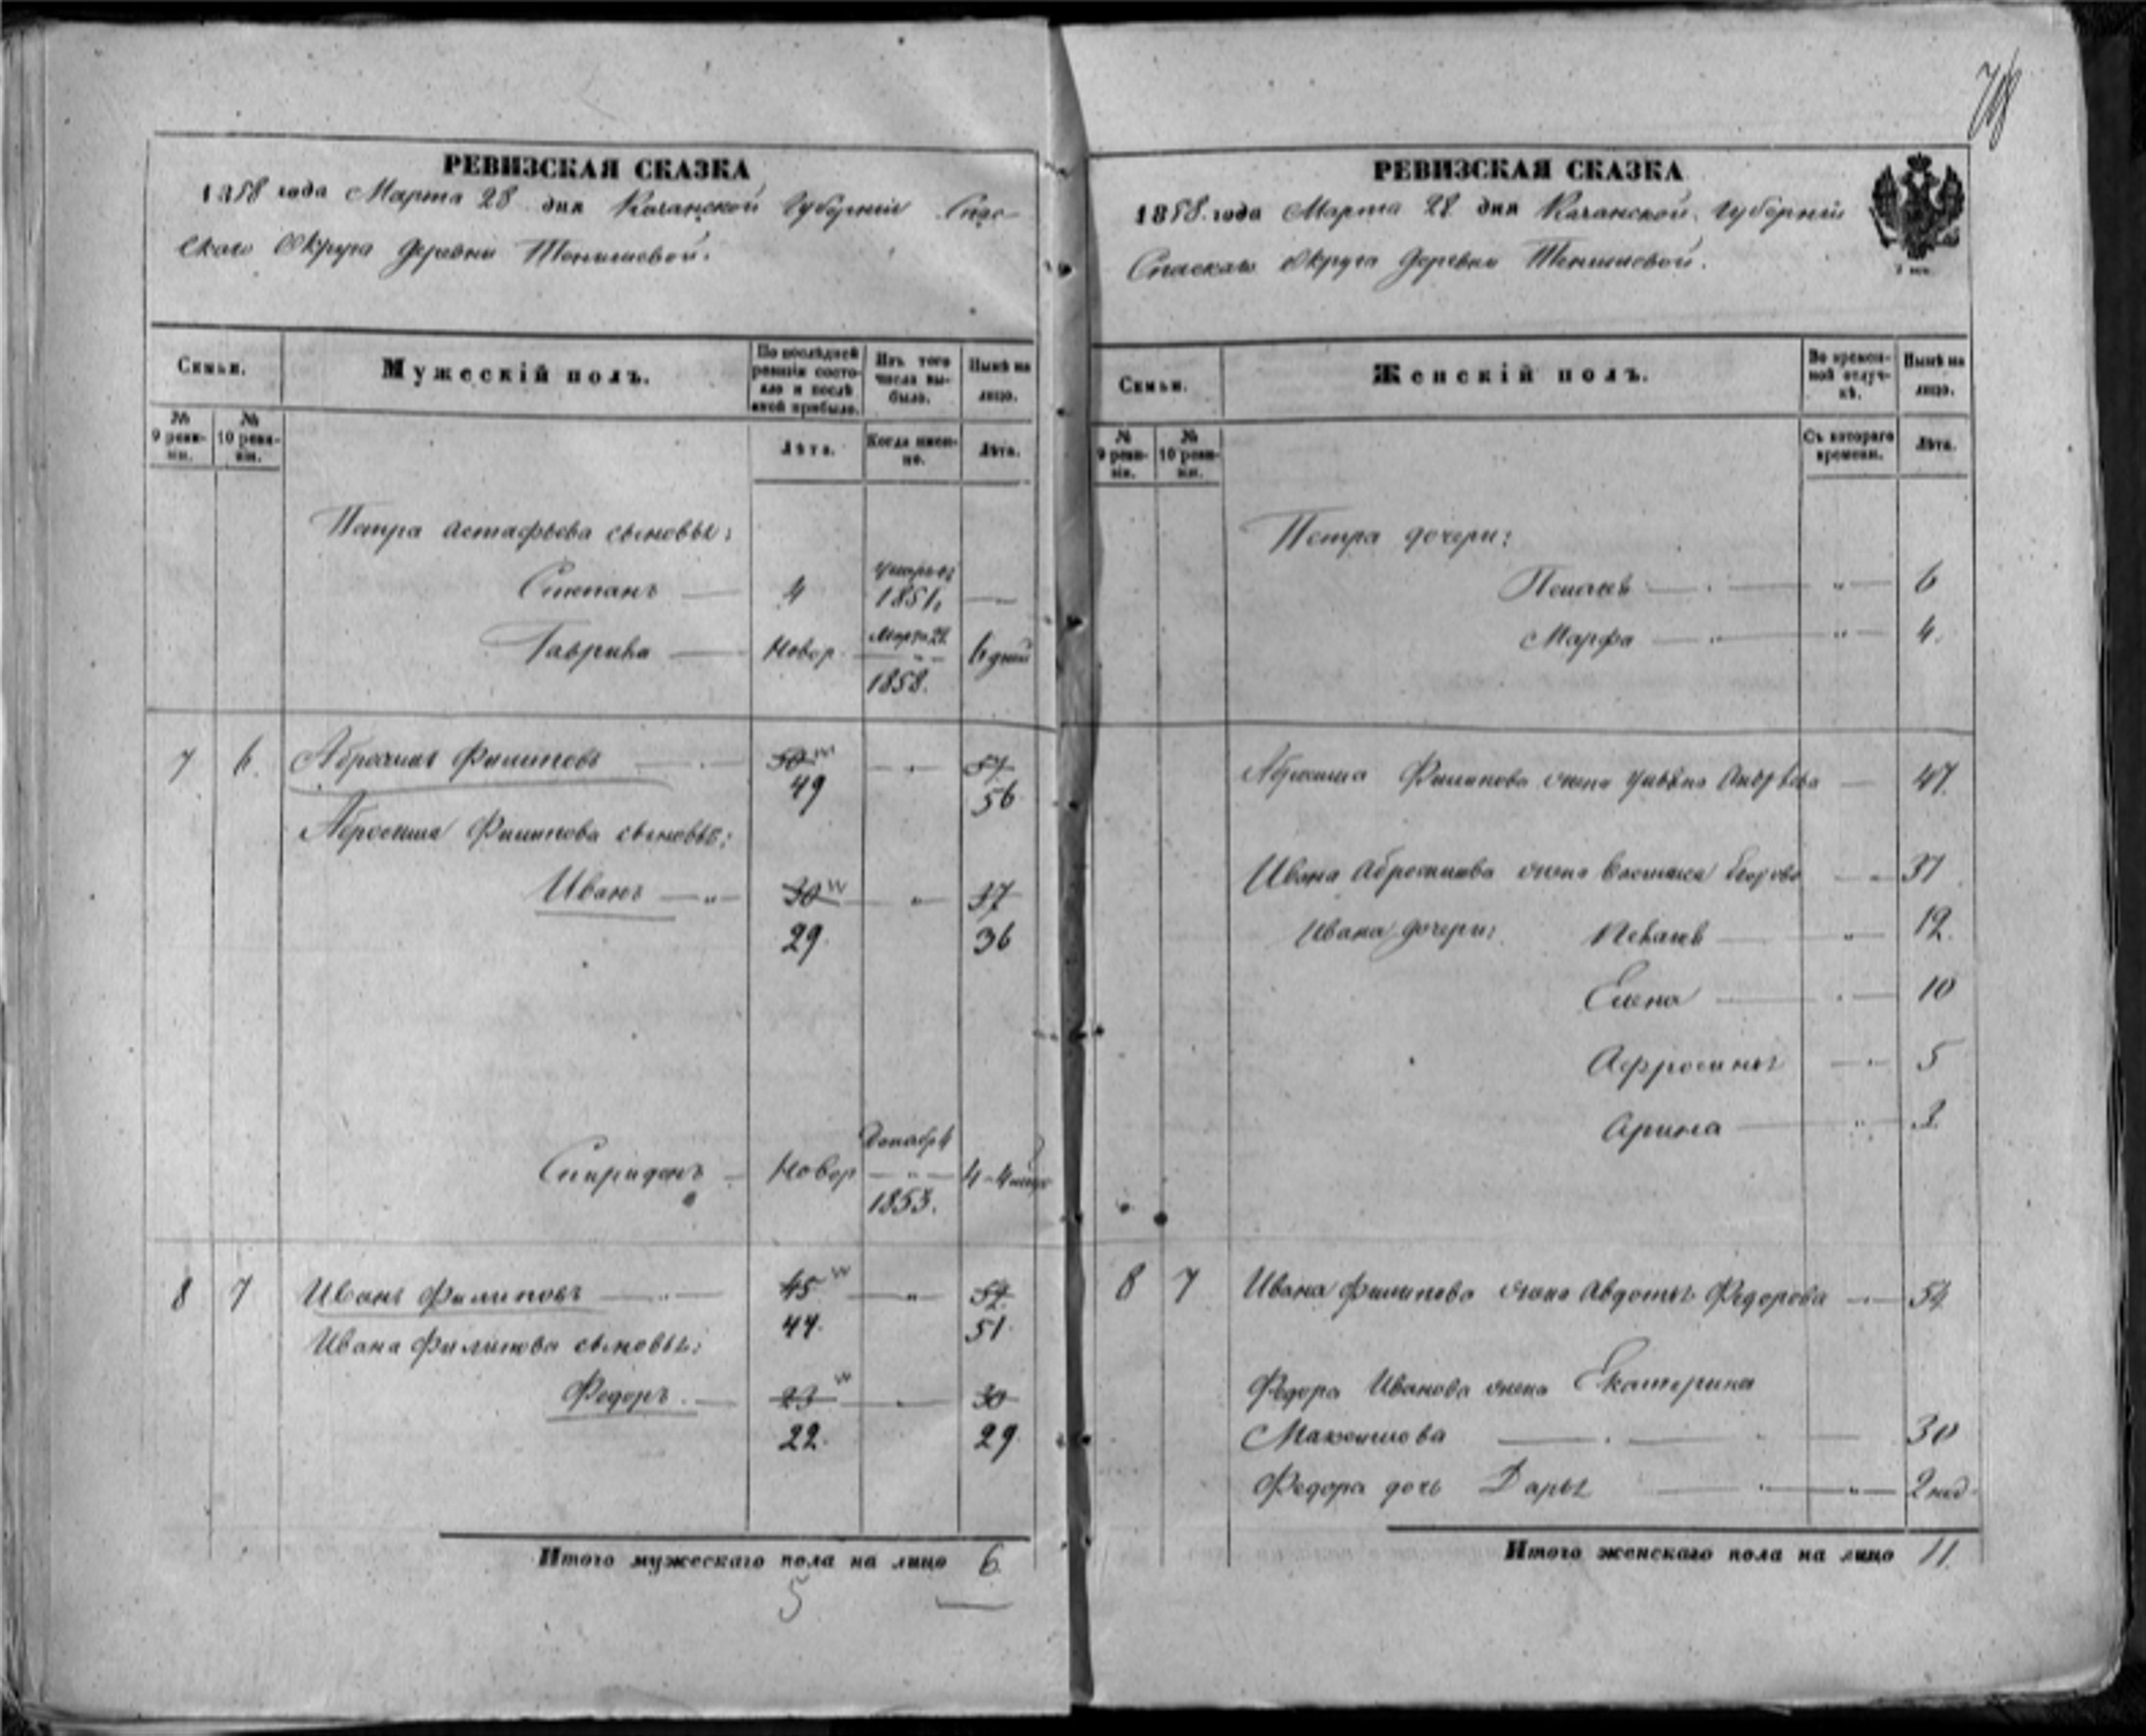 РЕВИЗСКАЯ СКАЗКА
1858 года Марта 28 дня Казанской Губернии Спас-
скаго Округа деревни Тенишевой.
Семьи.
Мужескій полъ.
По послѣдней ревизіи состояло и послѣ оной прибыло.
Изъ того числа выбыло.
Нынѣ на лицо.
№ 9 ревизіи.
№ 10 ревизіи.
Лѣта.
Когда именно.
Лѣта.
Петра Астафьева сыновья:
Степанъ 4 1851
Гаврила Новор. Марта 22 1858. 6 дней
7 6. Абросимъ Филиповъ 50 57
49 56
Абросима Филипова сыновья:
Иванъ 30 37
29. 36
Спиридонъ Новор Декабря 1853. 4-4 мѣся
8 7 Иванъ Филиповъ 45 52
44. 51.
Ивана Филипова сыновья:
Федоръ. 23 30
22. 29
Итого мужескаго пола на лицо 6.
5
РЕВИЗСКАЯ СКАЗКА
1858 года Марта 28 дня Казанской Губерніи
Спаскаго Округа деревни Тенишевой.
Семьи.
Женскій полъ.
Во временной отлучкѣ.
Нынѣ на лицо.
№ 9 ревизіи.
№ 10 ревизіи.
Съ котораго времени.
Лѣта.
Петра дочери:
6
Марфа 4.
Абросима Филипова жена Ульяна Андрѣева 47.
Ивана Абросимова жена Егорова 31
Ивана дочери: 12.
Елена 10
Афросинья 5
Арина 3
8 7 Ивана Филипова жена Авдотья Федорова 54
Федора Иванова жена Екатерина
Максимова 30
Федора дочь Дарья 2 нед.
Итого женскаго пола на лицо 11.